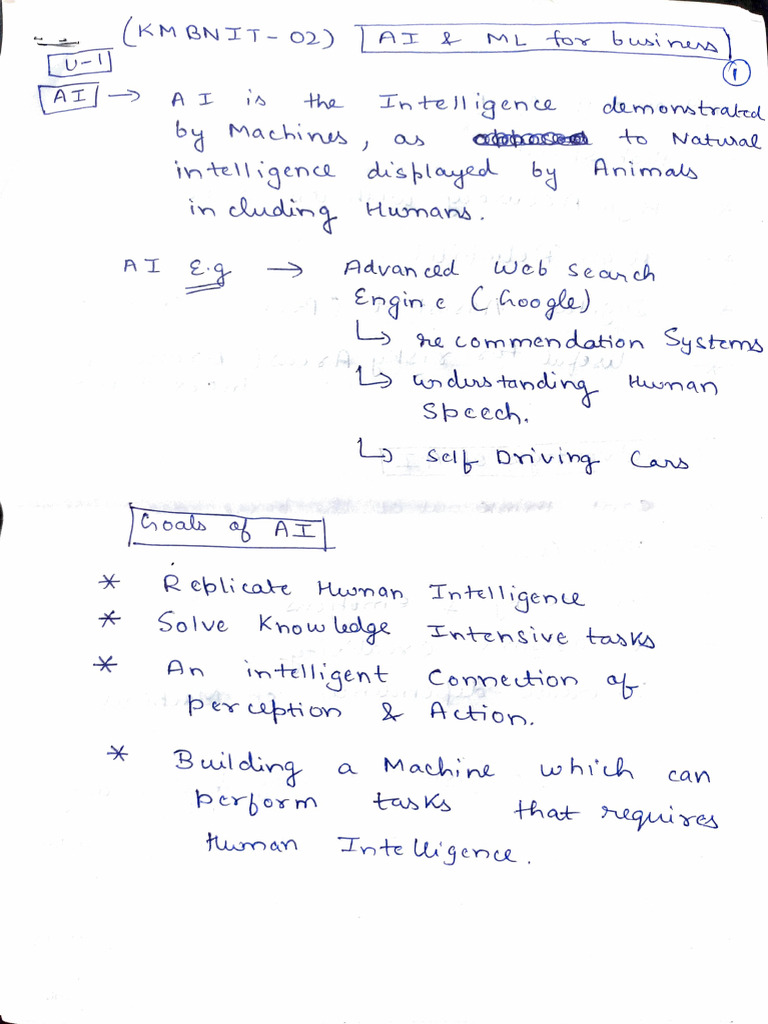 (KMBNIT-02) AI & ML for business
U-1
1
AI → AI is the Intelligence demonstrated
by Machines, as to Natural
intelligence displayed by Animals
including Humans.
AI E.g → Advanced Web Search
Engine (Google)
↳ recommendation Systems
↳ understanding Human
Speech.
↳ Self Driving Cars
Goals of AI
* Replicate Human Intelligence
* Solve Knowledge Intensive tasks
* An intelligent Connection of
perception & Action.
* Building a Machine which can
perform tasks that requires
Human Intelligence.